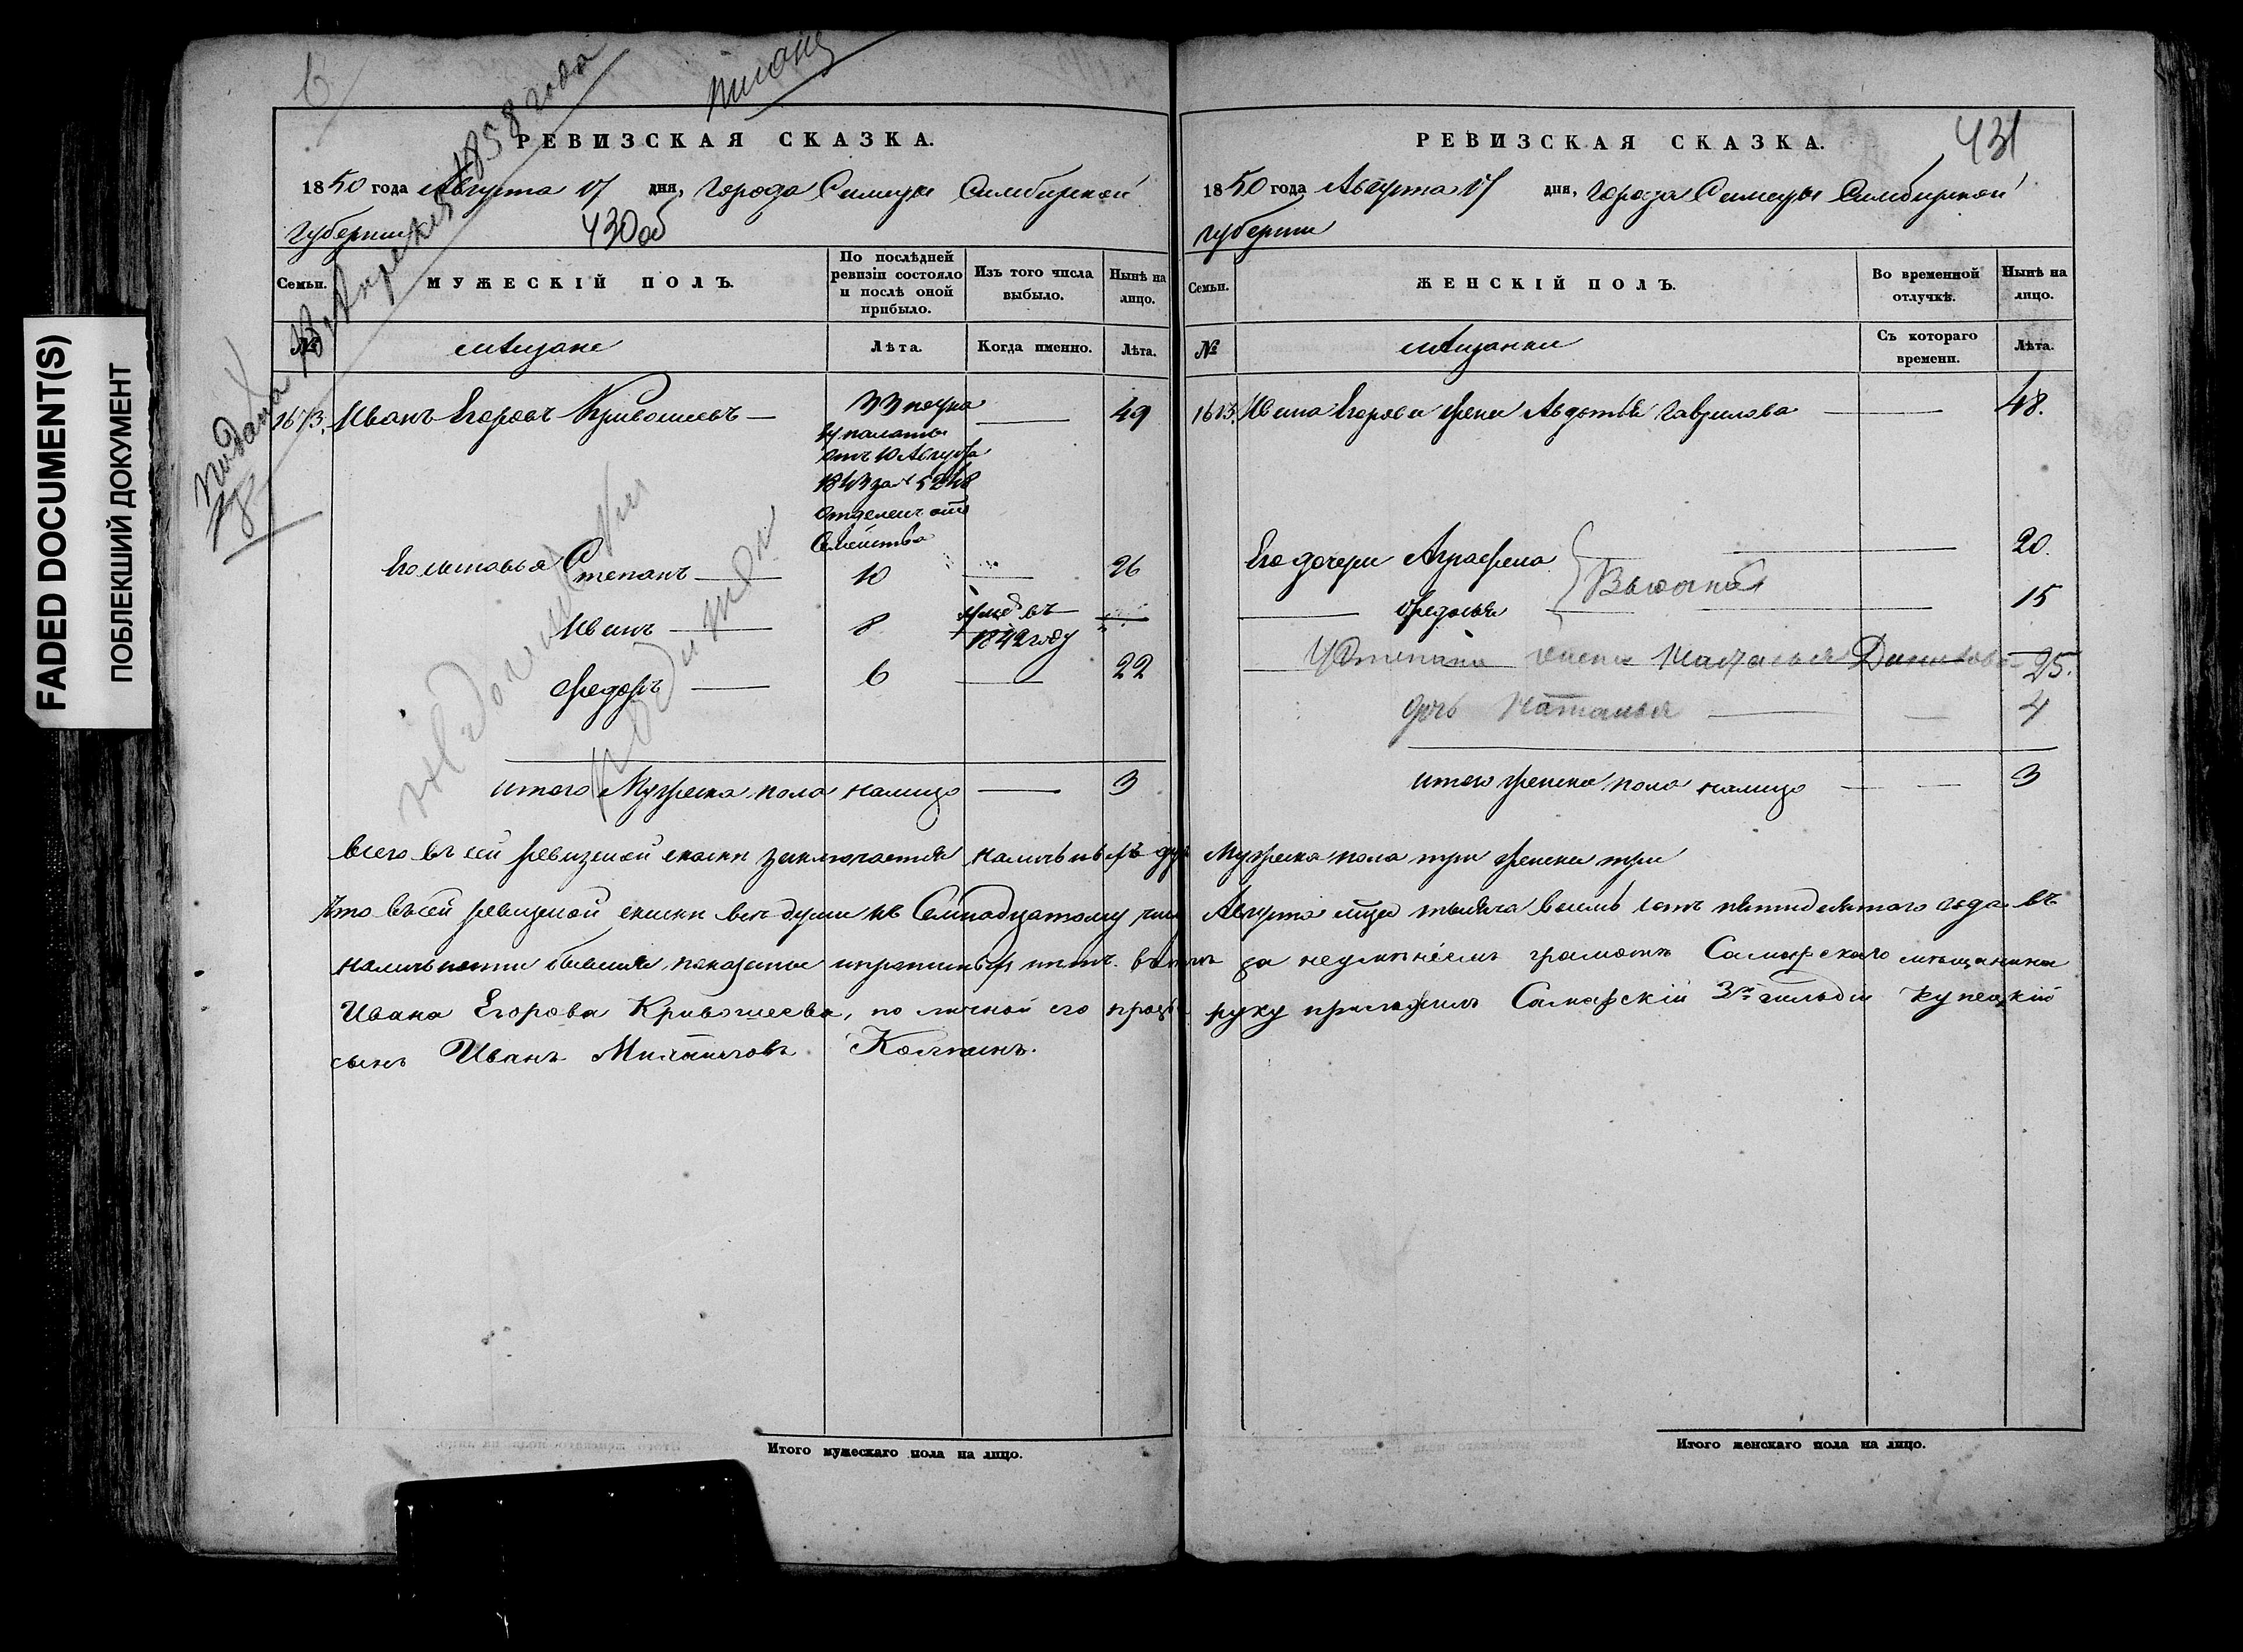 FADED DOCUMENT(S)
ПОБЛЕКШИЙ ДОКУМЕНТ
6
подана 18 Апреля 1858 года
РЕВИЗСКАЯ СКАЗКА.
1850 года Августа 17 дня, Города Самары Симбирской
Губернии
430 об
Семьи.
МУЖЕСКІЙ ПОЛЪ.
По послѣдней ревизіи состояло и послѣ оной прибыло.
Изъ того числа выбыло.
Нынѣ на лицо.
№
мѣщане
Лѣта.
Когда именно.
Лѣта.
1673. Иванъ Егоровъ Кривошеевъ — 33 — 49
палаты
отъ 10 Августа
1843 за № 5248
отделенъ отъ
Семейства
Его сыновья Степанъ — 10 — 26
Иванъ — 8 умеръ въ 1842 году
Федоръ — 6 — 22
итого Мужеска пола налицо — 3
РЕВИЗСКАЯ СКАЗКА.
431
1850 года Августа 17 дня, Города Самары Симбирской
губернии
Семьи.
ЖЕНСКІЙ ПОЛЪ.
Во временной отлучкѣ.
Нынѣ на лицо.
№
мѣщанки
Съ котораго времени.
Лѣта.
1673. Ивана Егорова жена Авдотья Гаврилова — 48.
Его дочери Аграфена — 20.
Федосья — 15
У Степана жена Данилова 25.
дочь Наталья — 4
итого женска пола налицо — 3
всего въ сей ревизской скаски заключается наличныхъ душ Мужеска пола три женска три
Что въ сей ревизской скаски все души къ Семнадцатому числу Августа месяца тысяча восемь сотъ пятидесятого года въ
наличности бывшия показаны и прописныхъ нетъ. въ томъ за неуменіемъ грамоте Самарскаго мещанина
Ивана Егорова Кривошеева, по личной его прозьбе руку приложилъ Самарскій 3й гильдіи Купецкій
сынъ Иванъ Колпинъ.
Итого мужескаго пола на лицо.
Итого женскаго пола на лицо.